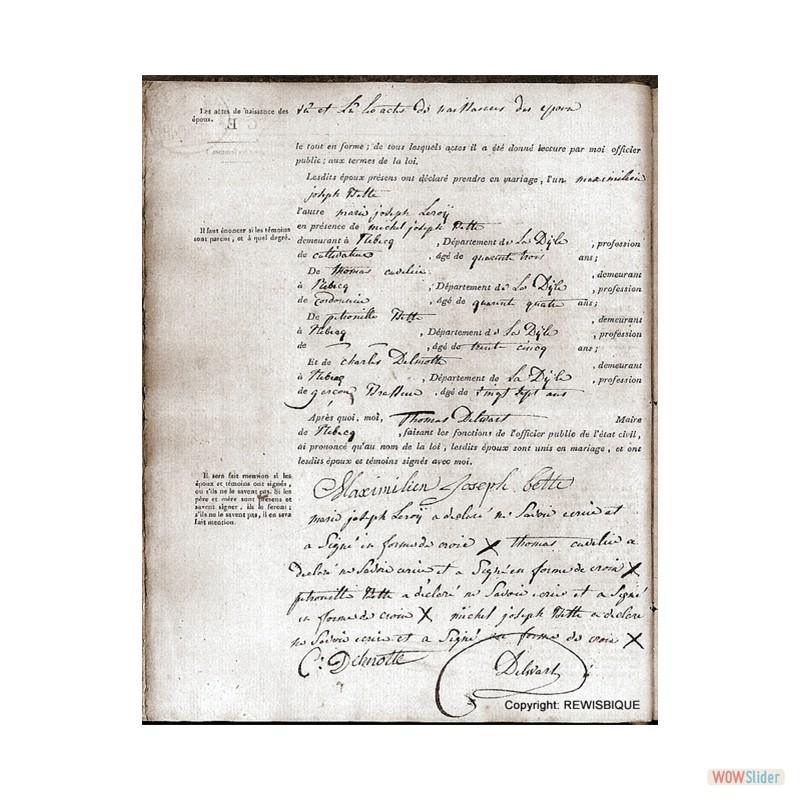 Les actes de naissance des
époux.
vu et lu les acts de naissances des epoux
le tout en forme ; de tous lesquels actes il a été donné lecture par moi officier
public ; aux termes de la loi.
Lesdits époux présens ont déclaré prendre en mariage, l'un maximilien
joseph Bette
l'autre marie joseph Leroÿ
Il faut énoncer si les témoins
sont parens, et à quel degré.
en présence de michel joseph Bette
demeurant à Rebecq , Département de La Dÿle , profession
de cultivateur , âgé de quarente trois ans ;
De thomas cuvelier , demeurant
à Rebecq , Département de La Dÿle , profession
de Cordonnier , âgé de quarente quatre ans ;
De petronille Bette , demeurant
à Rebecq , Département de La Dÿle , profession
de , âgé de trente cincq ans ;
Et de charles Delmotte , demeurant
à Rebecq , Département de La Dÿle , profession
de garçon Brasseur , âgé de vingt sept ans
Après quoi, moi, Thomas Delwart Maire
de Rebecq , faisant les fonctions de l'officier public de l'état civil,
ai prononcé qu'au nom de la loi, lesdits époux sont unis en mariage, et ont
lesdits époux et témoins signés avec moi.
Il sera fait mention si les
époux et témoins ont signés,
ou s'ils ne le savent pas. Si les
père et mère sont présens et
savent signer, ils le feront ;
s'ils ne le savent pas, il en sera
fait mention.
Maximilien Joseph bette
marie joseph Leroÿ a declaré ne Savoir ecrire et
a Signé en forme de croix X thomas cuvelier a
declaré ne Savoir ecrire et a Signé en forme de croix X
petronille Bette a declaré ne Savoir ecrire et a Signé
en forme de croix X michel joseph Bette a declare
ne Savoir ecrire et a Signé en forme de croix X
C: Delmotte
Delwart
Copyright: REWISBIQUE
WOWSlider